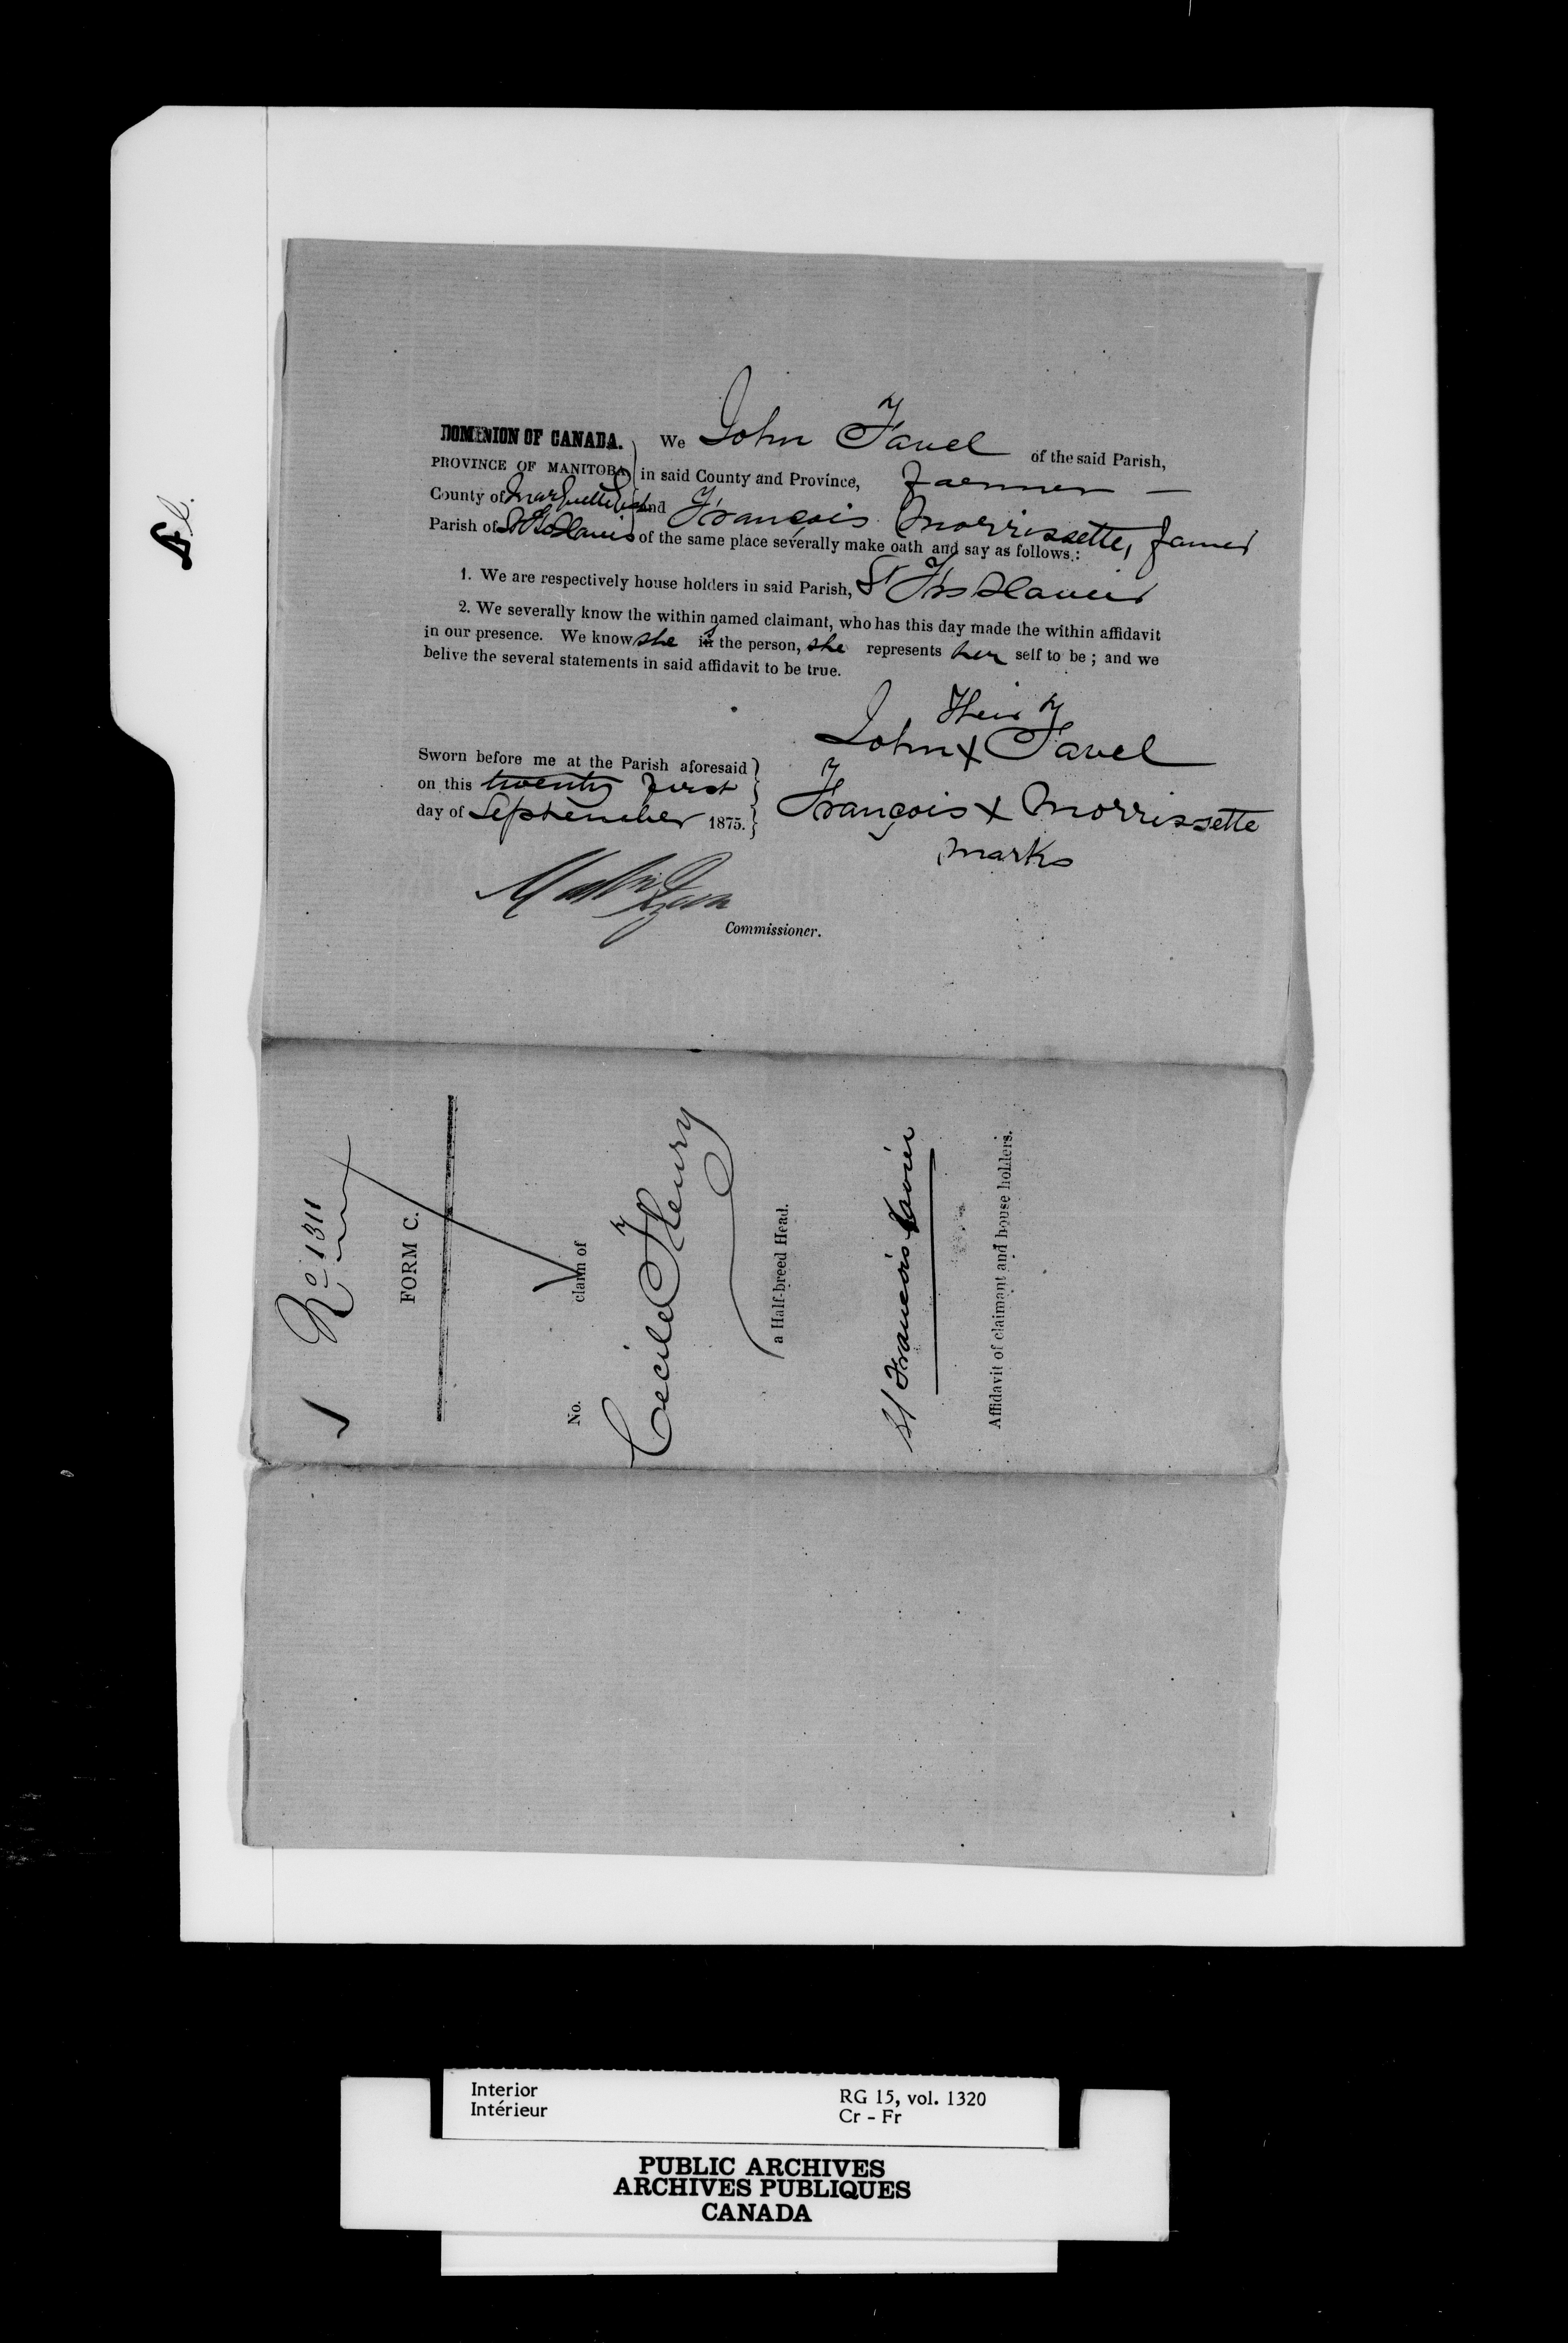 Fl.
DOMINION OF CANADA.
PROVINCE OF MANITOBA
County of Marquette East
Parish of St Frs Xavier
We John Favel of the said Parish,
in said County and Province, Farmer —
and François Morrissette, farmer
of the same place severally make oath and say as follows :
1. We are respectively house holders in said Parish, St Frs Xavier
2. We severally know the within named claimant, who has this day made the within affidavit
in our presence. We know she is the person, she represents her self to be ; and we
belive the several statements in said affidavit to be true.
Their
John X Favel
François X Morrissette
marks
Sworn before me at the Parish aforesaid
on this twenty first
day of September 1875.
Commissioner.
Rc 1311
FORM C.
No. claim of
Cecile Fleury
a Half-breed Head.
St Francois Xavier
Affidavit of claimant and house holders.
Interior
Intérieur
RG 15, vol. 1320
Cr - Fr
PUBLIC ARCHIVES
ARCHIVES PUBLIQUES
CANADA